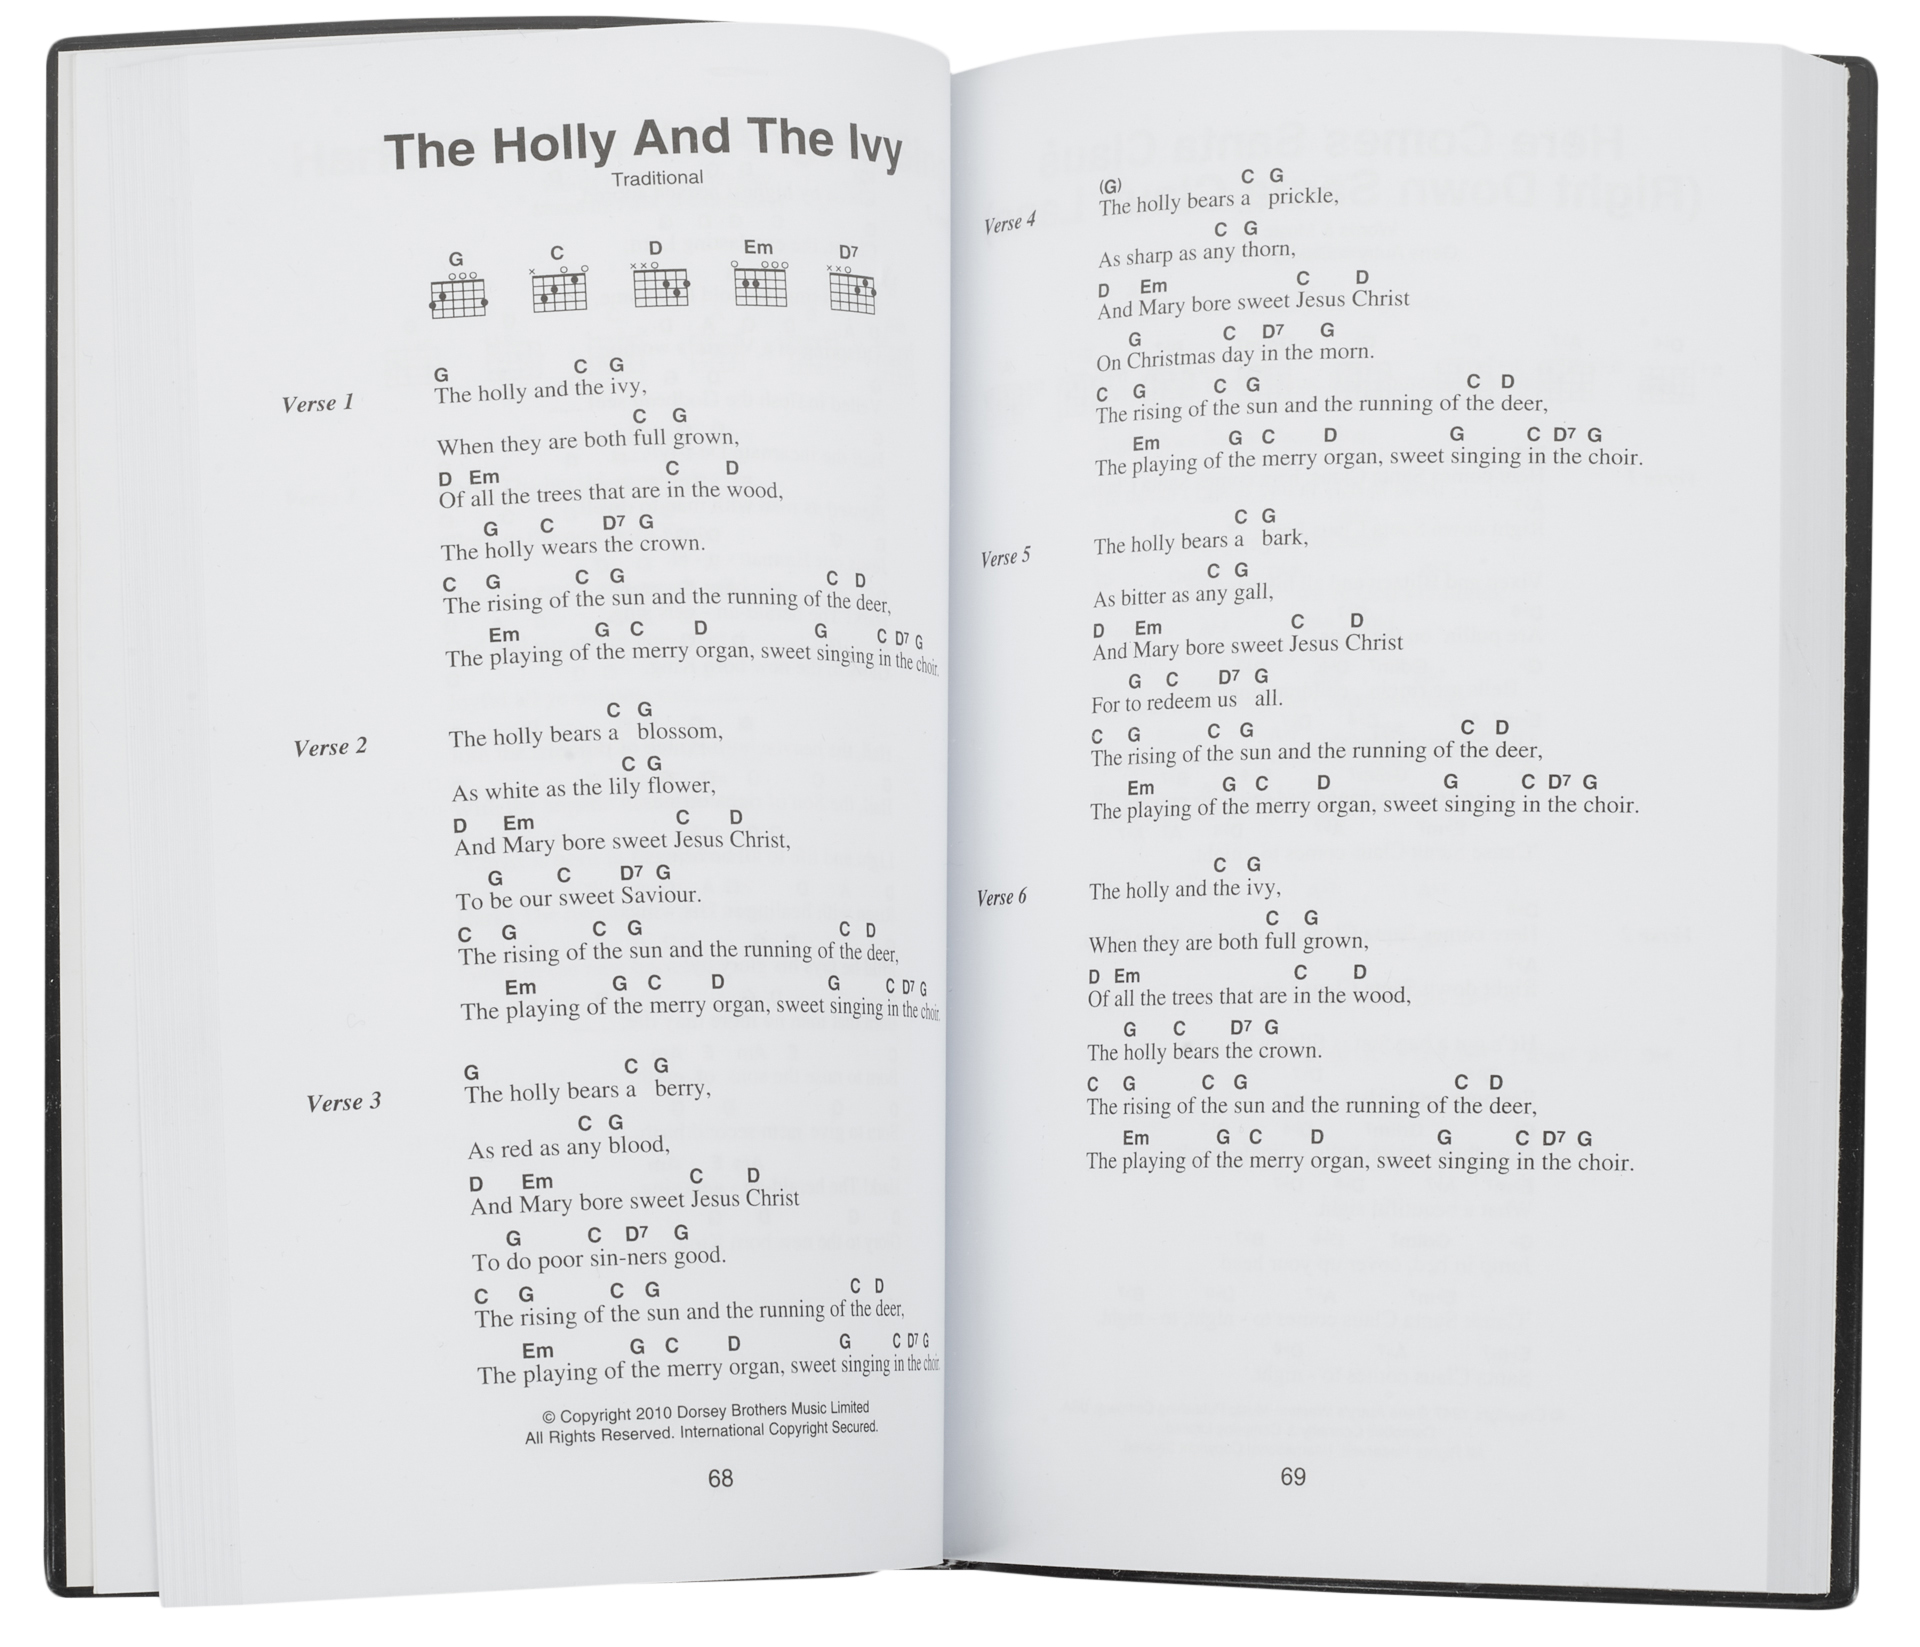 The Holly And The Ivy
Traditional
G C D Em D7
Verse 1
G C G
The holly and the ivy,
C G
When they are both full grown,
D Em C D
Of all the trees that are in the wood,
G C D7 G
The holly wears the crown.
C G C G C D
The rising of the sun and the running of the deer,
Em G C D G C D7 G
The playing of the merry organ, sweet singing in the choir.
Verse 2
C G
The holly bears a blossom,
C G
As white as the lily flower,
D Em C D
And Mary bore sweet Jesus Christ,
G C D7 G
To be our sweet Saviour.
C G C G C D
The rising of the sun and the running of the deer,
Em G C D G C D7 G
The playing of the merry organ, sweet singing in the choir.
Verse 3
G C G
The holly bears a berry,
C G
As red as any blood,
D Em C D
And Mary bore sweet Jesus Christ
G C D7 G
To do poor sin-ners good.
C G C G C D
The rising of the sun and the running of the deer,
Em G C D G C D7 G
The playing of the merry organ, sweet singing in the choir.
© Copyright 2010 Dorsey Brothers Music Limited
All Rights Reserved. International Copyright Secured.
68
Verse 4
(G) C G
The holly bears a prickle,
C G
As sharp as any thorn,
D Em C D
And Mary bore sweet Jesus Christ
G C D7 G
On Christmas day in the morn.
C G C G C D
The rising of the sun and the running of the deer,
Em G C D G C D7 G
The playing of the merry organ, sweet singing in the choir.
Verse 5
C G
The holly bears a bark,
C G
As bitter as any gall,
D Em C D
And Mary bore sweet Jesus Christ
G C D7 G
For to redeem us all.
C G C G C D
The rising of the sun and the running of the deer,
Em G C D G C D7 G
The playing of the merry organ, sweet singing in the choir.
Verse 6
C G
The holly and the ivy,
C G
When they are both full grown,
D Em C D
Of all the trees that are in the wood,
G C D7 G
The holly bears the crown.
C G C G C D
The rising of the sun and the running of the deer,
Em G C D G C D7 G
The playing of the merry organ, sweet singing in the choir.
69